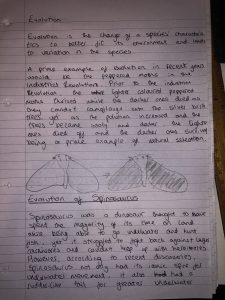 Evolution
Evolution is the change of a species characteris
tics to better fit its environment and leads
to variation in the species.
A prime example of evolution in recent years
would be the peppered moths in the
Industrial Revolution. Prior to the industrial
Revolution, the lighter coloured peppered
moths thrived while the darker ones died as
they couldn't camouflage into the silver birch
trees yet as the pollution increased and the
trees became sooty and darker the lighter
ones died off and the darker ones survived
being a prime example of natural selection.
Evolution of Spinosaurus
Spinosaurus was a dinosaur thought to have
spent the majority of its time on land
while being able to go underwater and hunt
fish, yet it struggled to fight back against large
carnivores and couldn't keep up with herbivores
However, according to recent discoveries,
Spinosaurus not only had its conic spine for
underwater movement, it also had a
rudder-like tail for greater underwater